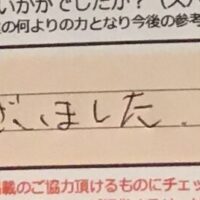 いかがでしたか？（ス
の何よりの力となり今後の参考
ざいました.
掲載のご協力頂けるものにチェッ